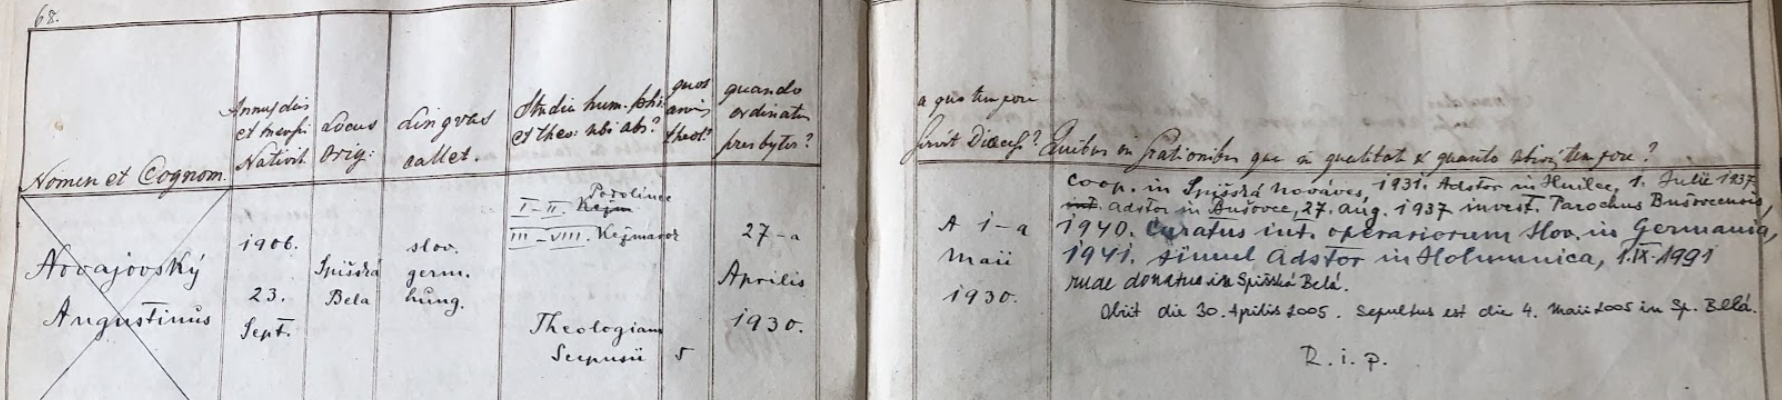 68.
Nomen et Cognom.
Annus dies
et mensis
Nativit.
Locus
Orig:
Lingvas
callet.
Studia hum. phi.
et theo: ubi abs?
quot
annis
theol?
quando
ordinatus
presbyter?
a quo tempore
servit Dioecesi?
Quibus in Stationibus que in qualitat et quanto ubivis tempore?
Novajovský
Augustinus
1906.
23.
Sept.
Spišská
Bela
slov.
germ.
hung.
Podolinec
I-II. Kežm
III-VIII. Kežmarok
Theologiam
Scepusii
5
27-a
Aprilis
1930.
A 1-a
Maii
1930.
Coop. in Spišská Nováves, 1931. Adstor in Hnilec, 1. Julii 1937
int. adstor in Bušovce, 27. aug. 1937 invest. Parochus Bušovcensis,
1940. Curatus int. operariorum slov. in Germania,
1941. simul Adstor in Holumnica, 1.IX.1991
rude donatus in Spišská Belá.
Obiit die 30. Aprilis 2005. Sepultus est die 4. Maii 2005 in Sp. Belá.
R. i. p.